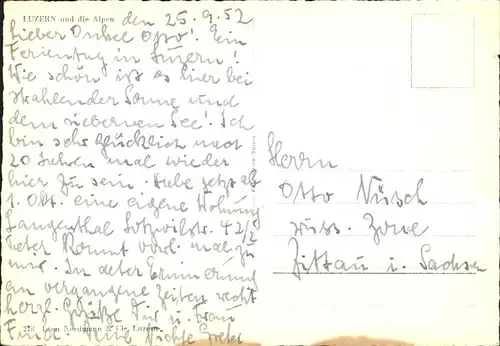 LUZERN und die Alpen den 25.9.52
Lieber Onkel Otto! Ein
Ferientag in Luzern!
Wie schön ist es hier bei
strahlender Sonne und
dem See! Ich
bin sehr glücklich nach
20 Jahren mal wieder
hier zu sein. Habe jetzt ab
1. Okt. eine eigene Wohnung
Langenthal Lotzwilstr. 42/2
Peter kommt vorl. mal zu
mir. In alter Erinnerung
an vergangene Zeiten recht
herzl. Grüße Dir u. Frau
Deine Nichte Gretel
Leon Nordmann & Cie, Luzern
Herrn
Otto Nusch
russ. Zone
Zittau i. Sachsen